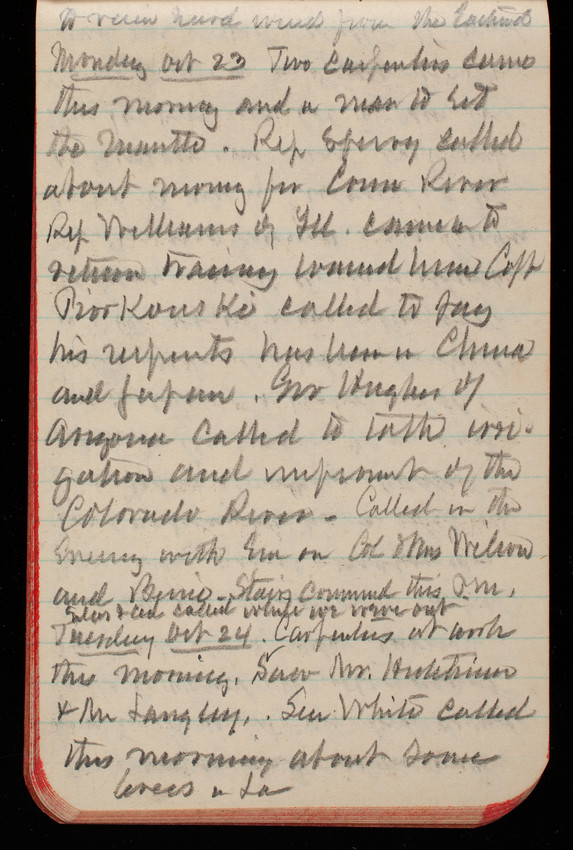 to rain hard wind from the Eastward
Monday Oct 23 Two Carpenters came
this morning and a man to set
the mantle. Rep called
about money for Conn River
Rep Williams of Ill. came in to
return
called to pay
his respects has been in China
and Japan. Gov Hughes of
Arizona called to talk irri-
gation and improvmt of the
Colorado River - Called in the
Evening with Em on Col & Mrs Wilson
and Stairs commend this P.M.
called while we were out
Tuesday Oct 24. Carpenters at work
this morning. Saw Mr. Hutchins
& Mr Langley. Sen White called
this morning about some
levees in La